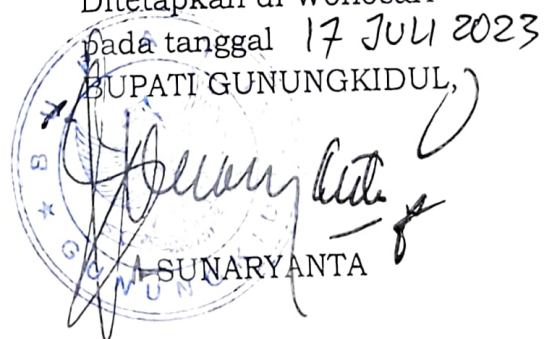 Ditetapkan di Wonosari
pada tanggal 17 JULI 2023
BUPATI GUNUNGKIDUL,
SUNARYANTA
GUNUN